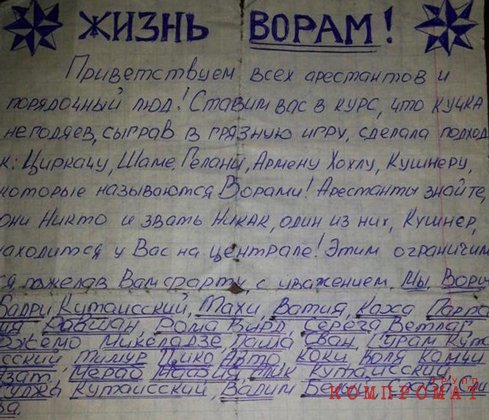 ЖИЗНЬ ВОРАМ!
Приветствуем всех арестантов и
порядочный люд! Ставим вас в курс, что кучка
негодяев, сыграв в грязную игру, сделала подход
к: Циркачу, Шаме, Гелани, Армену Хохлу, Кушнеру,
которые называются Ворами! Арестанты знайте,
они Никто и звать Никак, один из них, Кушнер,
находится у Вас на централе! Этим ограничим
ся пожелав Вам фарту с уважением, Мы, Воры:
Бадри Кутаисский, Махи, Ватия, Каха
Равшан, Рома Серёга Ветлаг,
Джемо Микеладзе, Паша Сван, Кута
сский, Тимур Пико, Коки Коля Камчи
Мераб Кутаисский,
Кутаисский, Вадим
ва.
ГРУПП
КОМПРОМАТ